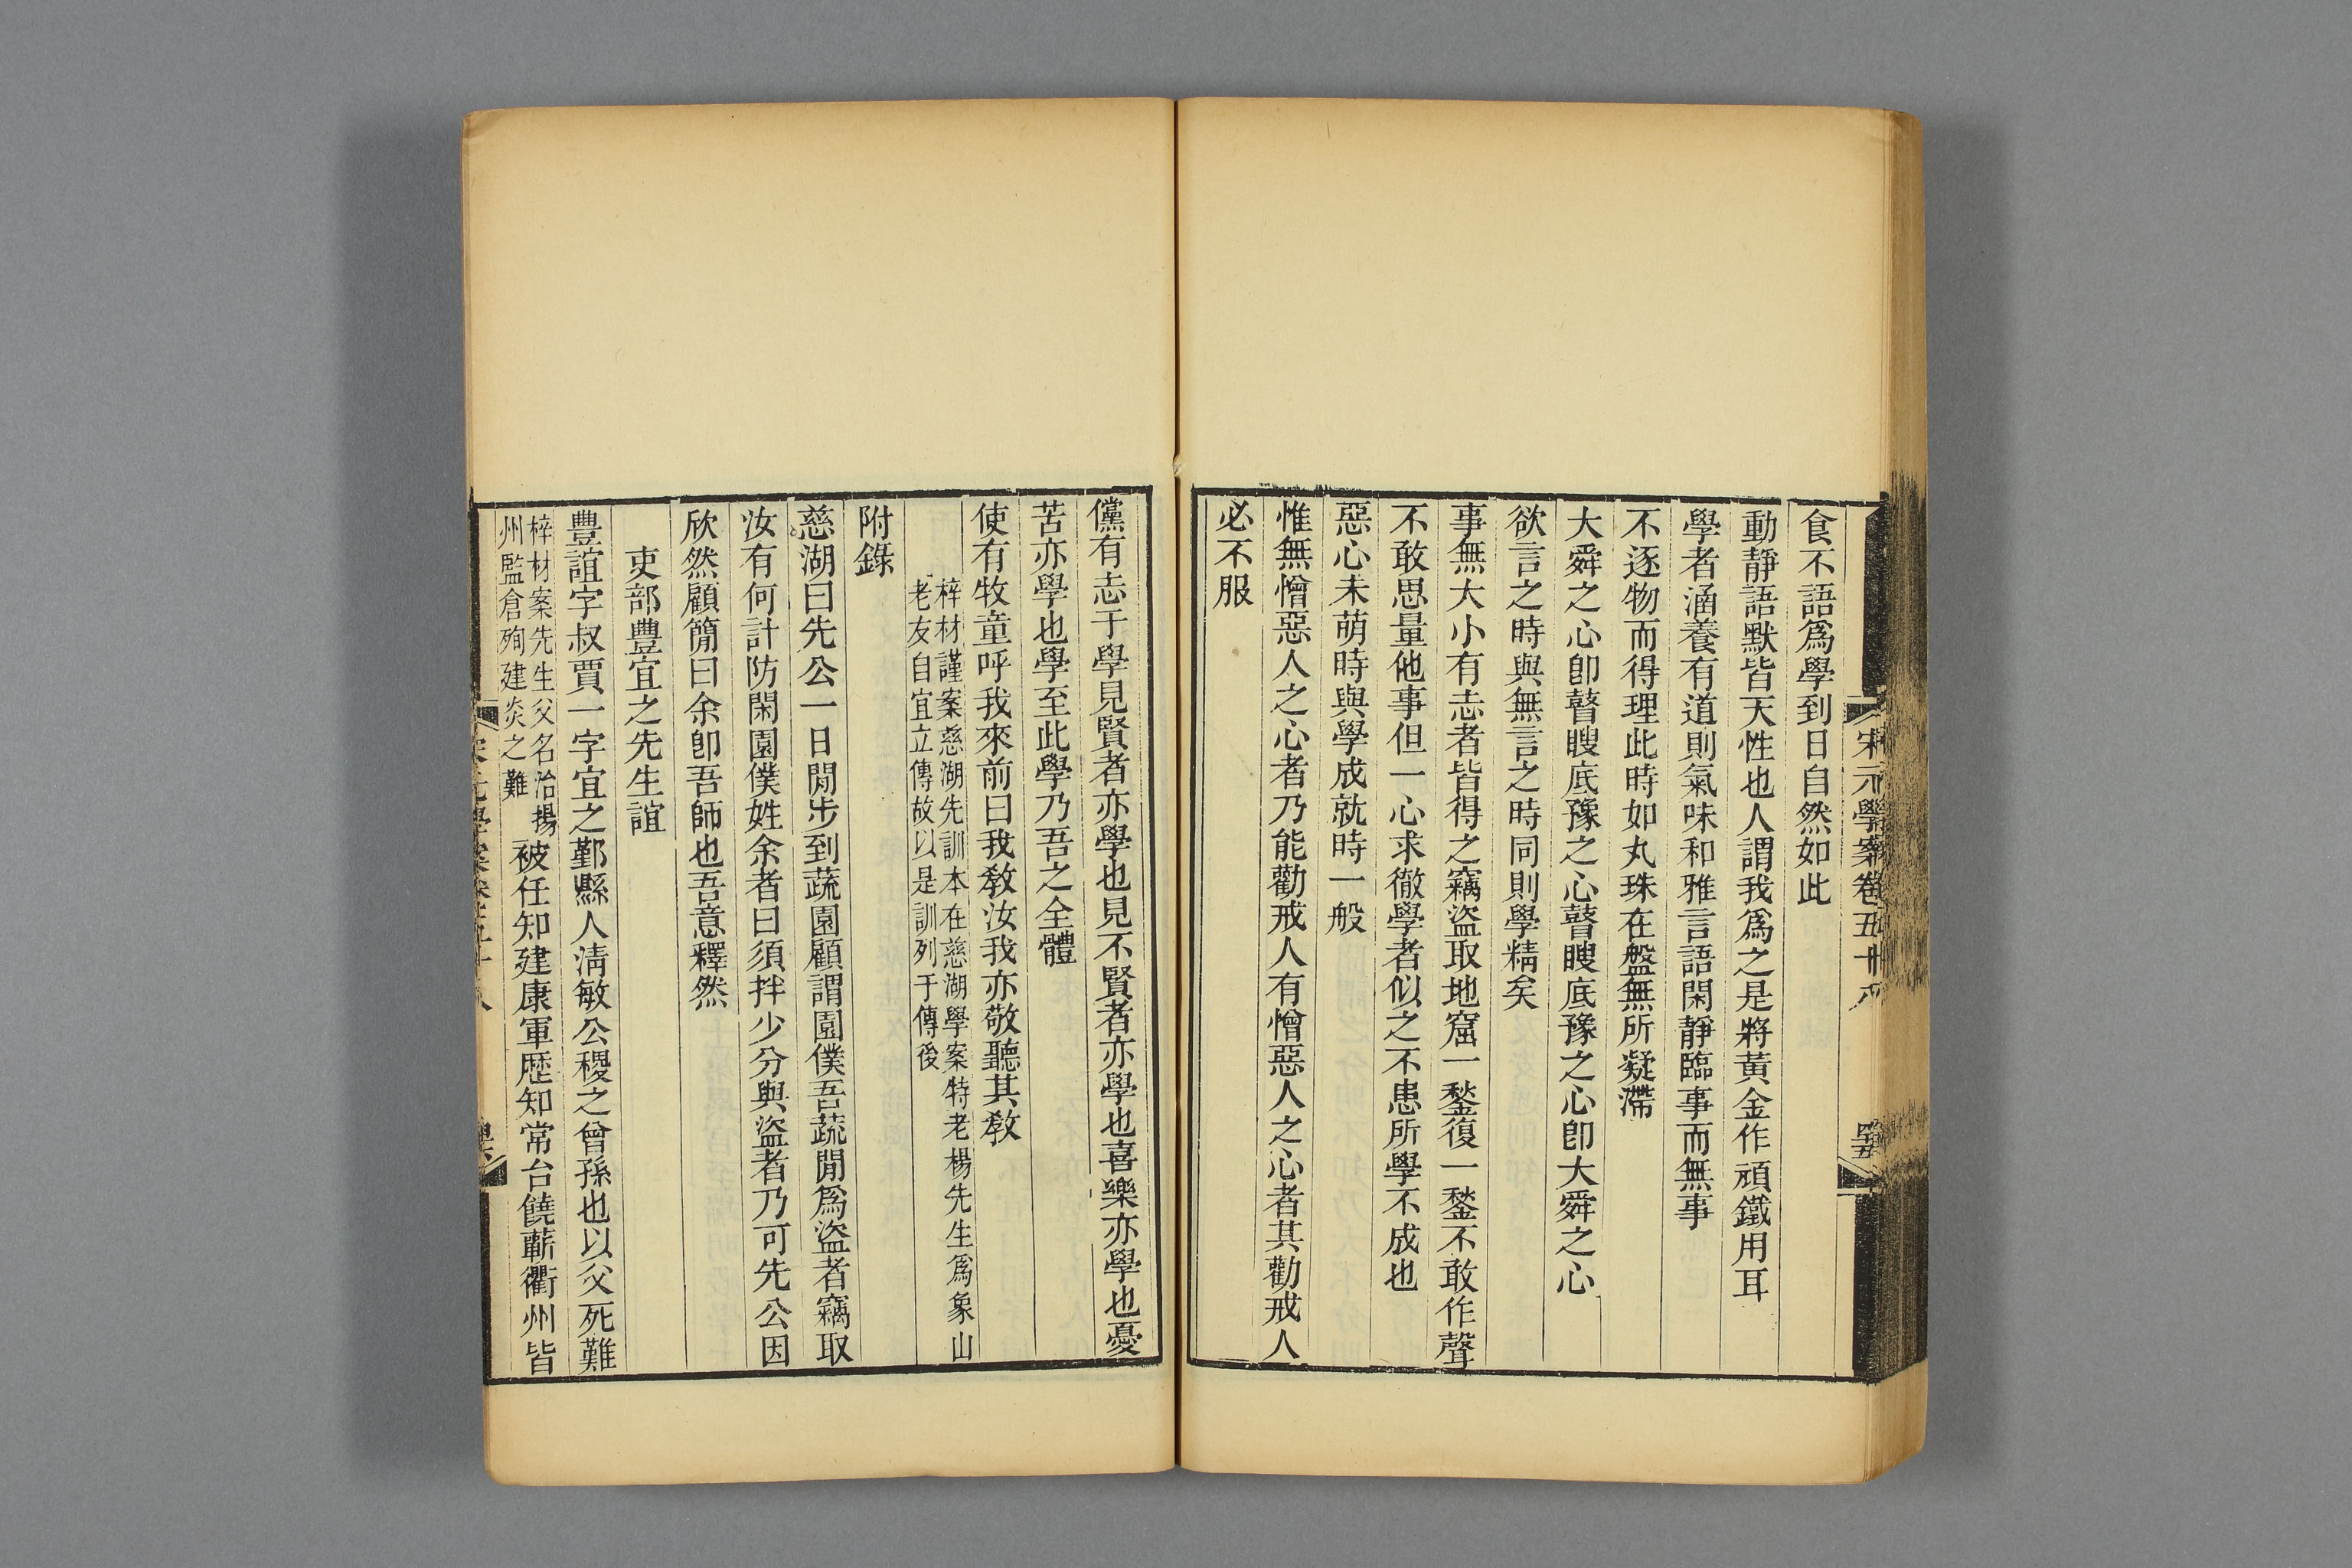 宋元學案卷五十八
食不語爲學到日自然如此
動靜語默皆天性也人謂我爲之是將黃金作頑鐵用耳
學者涵養有道則氣味和雅言語閑靜臨事而無事
不逐物而得理此時如丸珠在盤無所凝滯
大舜之心卽瞽瞍底豫之心瞽瞍底豫之心卽大舜之心
欲言之時與無言之時同則學精矣
事無大小有志者皆得之竊盜取地窟一鍫復一鍫不敢作聲
不敢思量他事但一心求徹學者似之不患所學不成也
惡心未萌時與學成就時一般
惟無憎惡人之心者乃能勸戒人有憎惡人之心者其勸戒人
必不服
儻有志于學見賢者亦學也見不賢者亦學也喜樂亦學也憂
苦亦學也學至此學乃吾之全體
使有牧童呼我來前曰我敎汝我亦敬聽其敎
梓材謹案慈湖先訓本在慈湖學案特老楊先生爲象山
老友自宜立傳故以是訓列于傳後
附錄
慈湖曰先公一日閒步到蔬園顧謂園僕吾蔬閒爲盜者竊取
汝有何計防閑園僕姓余者曰須拌少分與盜者乃可先公因
欣然顧簡曰余卽吾師也吾意釋然
吏部豐宜之先生誼
豐誼字叔賈一字宜之鄞縣人淸敏公稷之曾孫也以父死難
梓材案先生父名治揚
州監倉殉建炎之難
被任知建康軍歷知常台饒蘄衢州皆